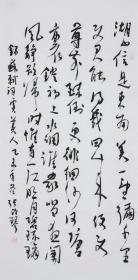 湖山信是東南美一望彌千里
使君能得幾回來便使
尊前醉倒更徘徊沙河塘
裏燈初上水調誰家唱夜闌
風靜欲歸時惟有一江明月碧琉璃
蘇軾詞虞美人